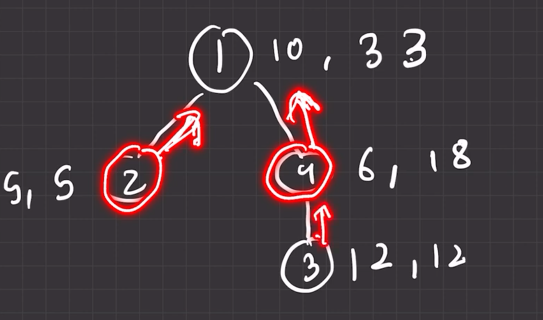 1 10, 33
5, 5 2 4 6, 18
3 12, 12